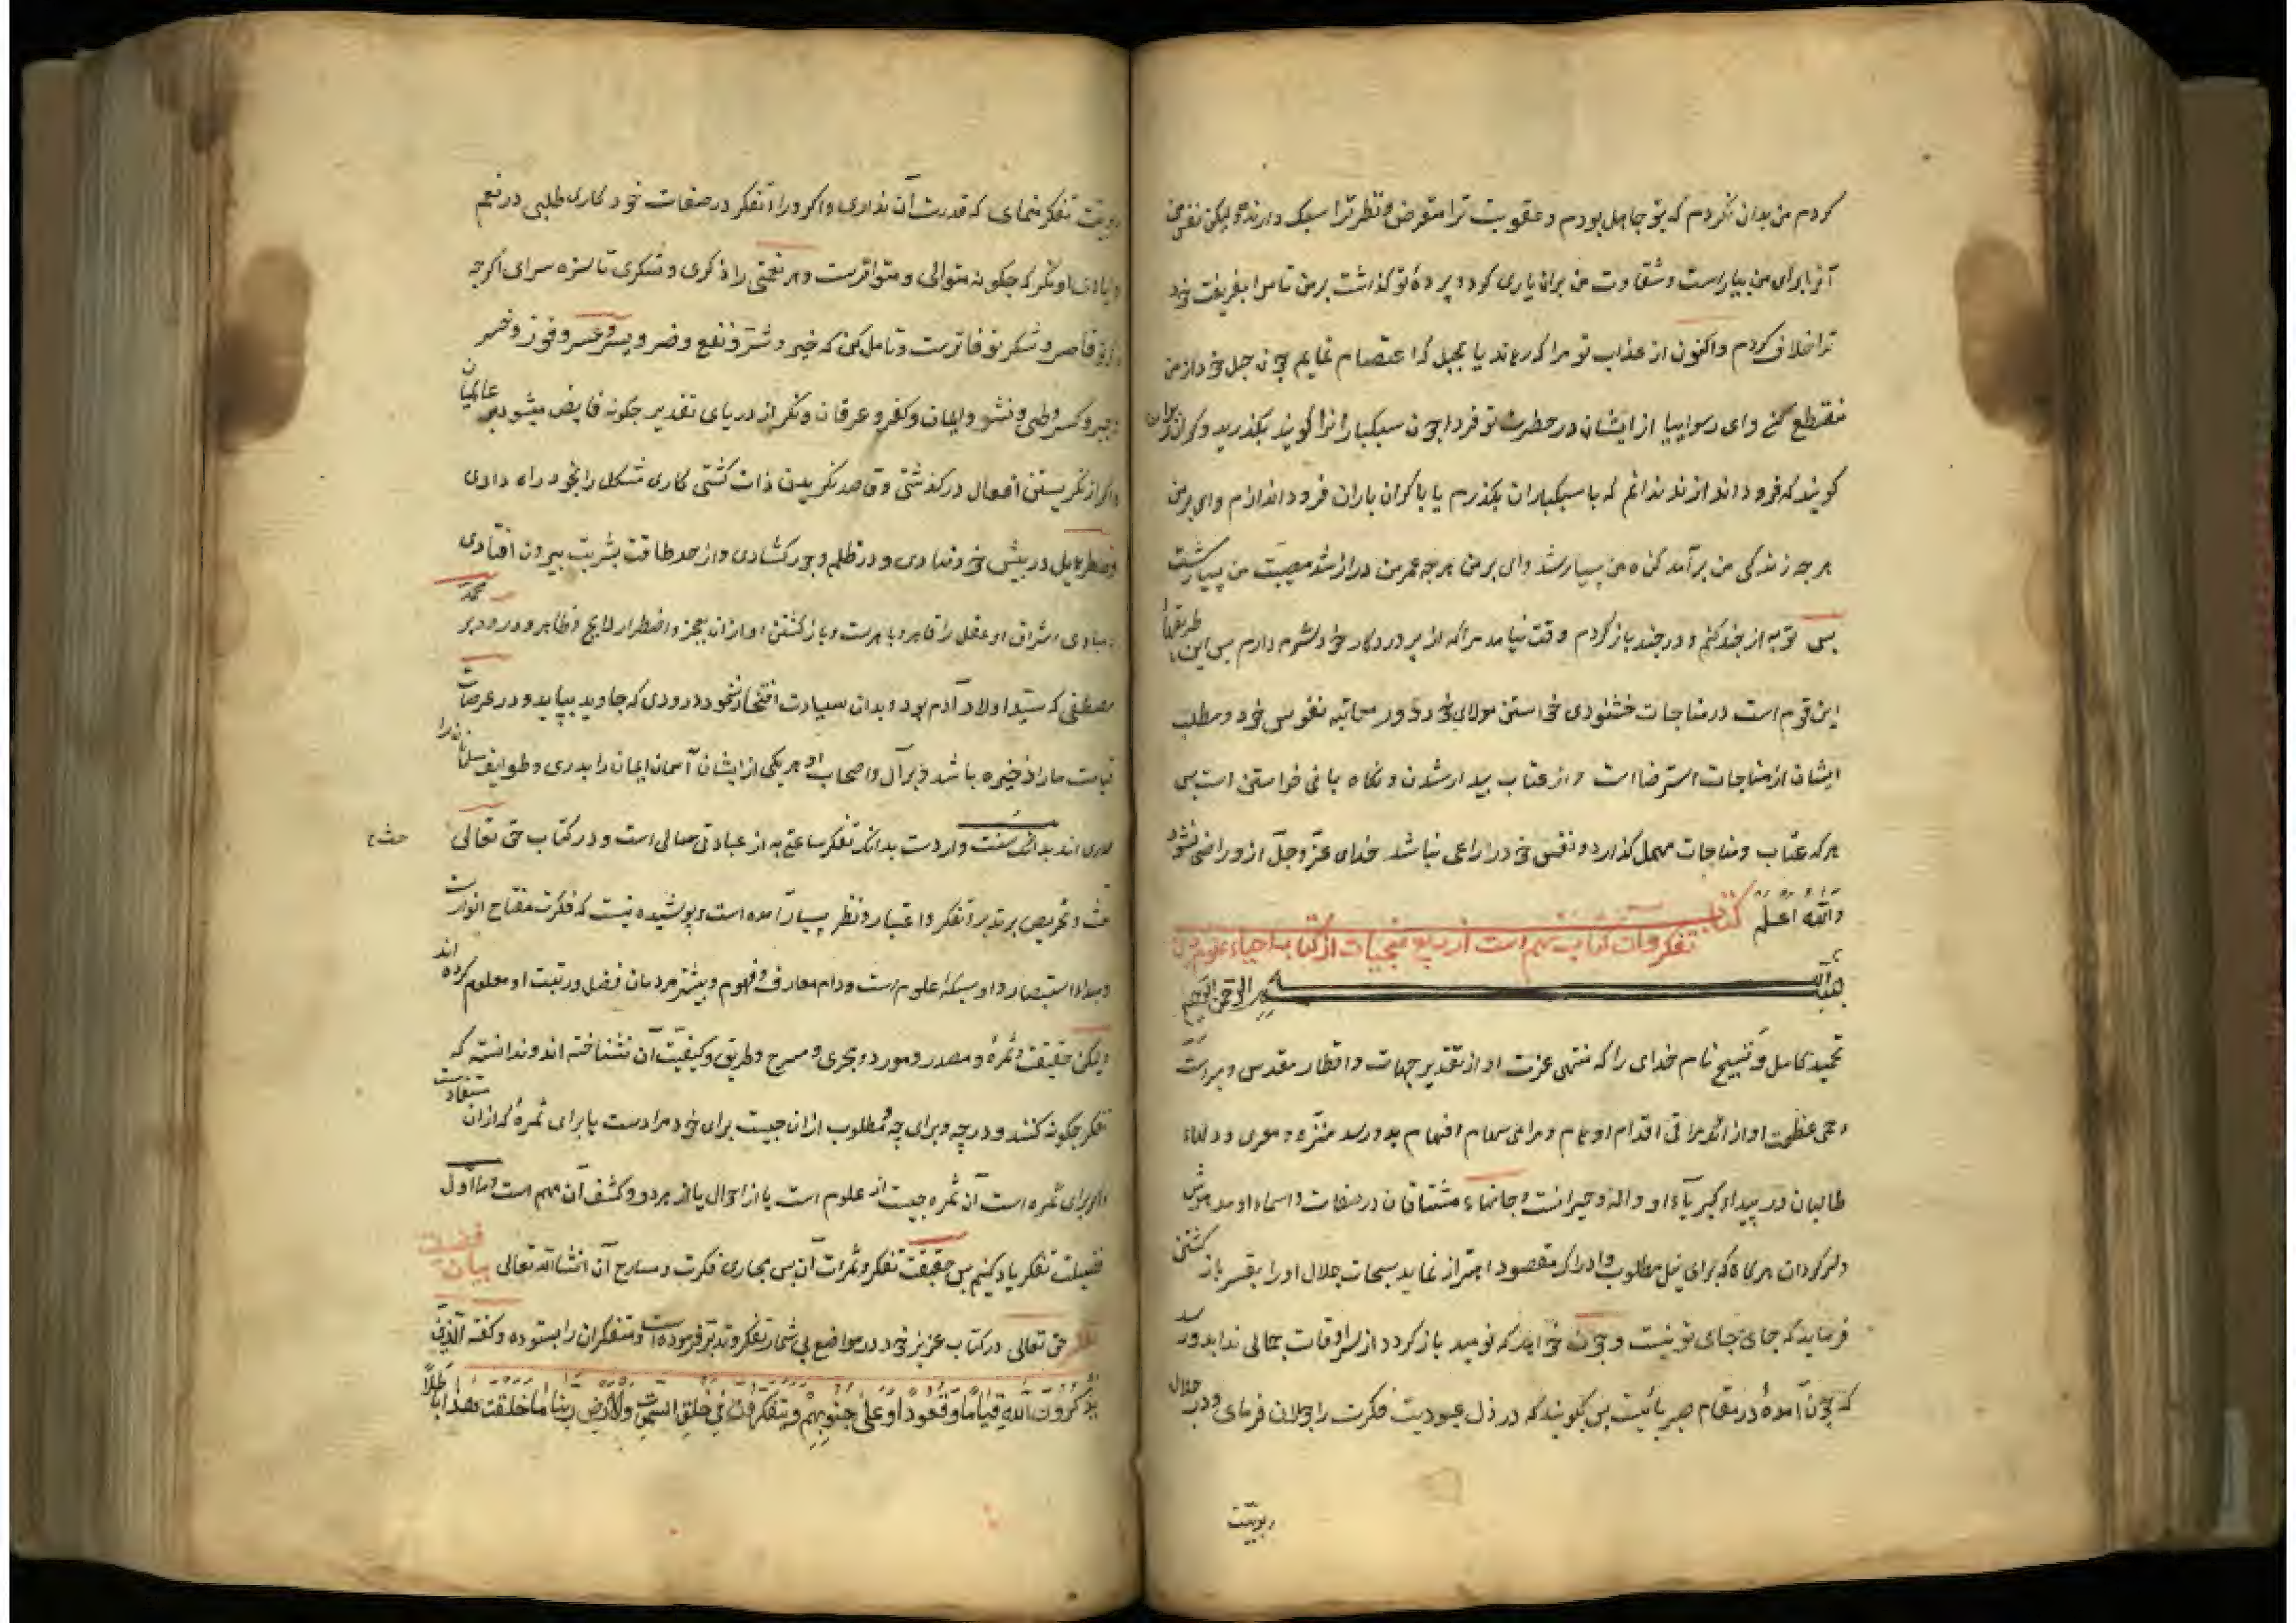 کردم من بدان نکردم که بتو جاهل بودم و عقوبت ترا متعرض و نظر ترا سبک دارنده ولیکن نفس من
آنرا برای من بیاراست و شقاوت من بران یاری کرد و پردهٔ تو که گذاشت بر من تا مرا بفریفت بخود
ترا خلاف کردم واکنون از عذاب تو مرا که رهاند یا بحبل که اعتصام نمایم چون حبل خود از من
منقطع کنی وای رسوایبا از ایشان در حطرت تو فردا چون سبکبارانرا کویند بکذرید و کران بارانرا
کویند که فرود اندازند ندانم که با سبکباران بکذرم یا با کران باران فرود اندازم وای بر من
هر چه زندکی من برآمد کناه من بسیار شد وای بر من هر چه عمر من دراز شد مصیبت من بسیار کشت
بس توبه از چند کنم و در چند باز کردم وقت نیامد مرا که از پروردکار خود شرم دارم بس این طریقهاء
این قوم است در مناجات خشنودی خواستن مولای خود و در معاتبه نفوس خود و مطلب
ایشان از مناجات استرضا است و از عتاب بیدار شدن و نکاه بانی خواستن است بس
هر که عتاب و مناجات مهمل کذارد و نفس خود را راعی نباشد خدای عز وجل ازو راضی نشود
والله اعلم کتاب
تفکر و آن کتاب نهم است از ربع منجیات از کتاب احیاء علوم دین
بسم الله الرحمن الرحیم
تحمید کامل و تسبیح تام خدای را که منتهی عزت او از تقدیر جهات و اقطار مقدس و مبراست
و حمی عظمت او از انکه مراقی اقدام اوهام و مرامی سهام افهام بدو رسد منزه و معری و دلهاء
طالبان در بیداء کبریاء او واله و حیرانست و جانهاء مشتاقان در صفات و اسماء او مدهوش
و سرکردان هرکاه که برای نیل مطلوب و ادراک مقصود اهتزاز نماید سبحات جلال او را بقسر باز کشتن
فرماید که جای جای تو نیست و چون خواهد که نومید باز کردد از سرادقات جمالی ندا بدو رسد
که چون آمدهٔ در مقام صبر بائیست بس بکویند که در ذل عبودیت فکرت را جولان فرمای و در جلال
ربوبیت
ربوبیت تفکر منمای که قدرت آن نداری و اکر ورا تفکر در صفات خود کاری طلبی در نعم
و ایادی او نکر که چکونه متوالی و متواترست و هر نعمتی را ذکری و شکری تازه سرای اکرچه
ذکر تو قاصر و شکر تو فاترست و تامل کن که خیر و شر و نفع و ضر و یسر و عسر و فوز و خسر
و جبر و کسر و طی و نشر و ایمان و کفر و عرفان و نکر از دریای تقدیر چکونه فایض میشود بر عالمیان
و اکر از نکریستن افعال در کذشتی و قاصد نکریدن ذات کشتی کاری مشکل را بخود راه دادی
و خطر هایل در بیش خود نهادی و در ظلم و جور کشادی و از حد طاقت بشریت بیرون افتادی
مبادی اشراق او عقل را قاهر و باهرست و باز کشتن او ازان بعجز و اضطرار لایح و ظاهر و درود بر محمد
مصطفی که سید اولاد آدم بود و بدان سیادت افتخار ننمود درودی که جاوید بپاید و در عرصات
قیامت ما را ذخیره باشد و بر آل و اصحاب او هر یکی از ایشان آسمان ایمان را بدری و طوایف مسلمانان را
صدری اند بدانکه سنت واردست بدانکه تفکر ساعتی به از عبادت سالی است و در کتاب حق تعالی
حث و تحریص بر تدبر و تفکر و اعتبار و نظر بسیار آمده است و پوشیده نیست که فکرت مفتاح انوارست
و مبداء استبصار و او سبکهٔ علوم است و دام معارف و فهوم و بیشتر مردمان فضل و رتبت او معلوم کرده اند
ولیکن حقیقت و ثمرهٔ و مصدر و مورد و مجری و مسرح و طریق و کیفیت آن نشناخته اند و ندانسته که
تفکر چکونه کنند و در چه و برای چه و مطلوب ازان چیست برای خود مرادست یا برای ثمرهٔ که ازان مستفادست
و اکر برای ثمره است آن ثمره چیست از علوم است یا از احوال یا از هر دو و کشف آن مهم است و ما اول
فضیلت تفکر یاد کنیم بس حقیقت تفکر و ثمرات آن بس مجاری فکرت و مسارح آن انشاالله تعالی بیان فضیلت
تفکر حق تعالی در کتاب عزیز خود در مواضع بی شمار تفکر و تدبر فرموده است و متفکران را بستوده و کفته الذین
یذکرون الله قیاما و قعودا و علی جنوبهم و یتفکرون فی خلق السموات والارض ربنا ما خلقت هذا باطلا